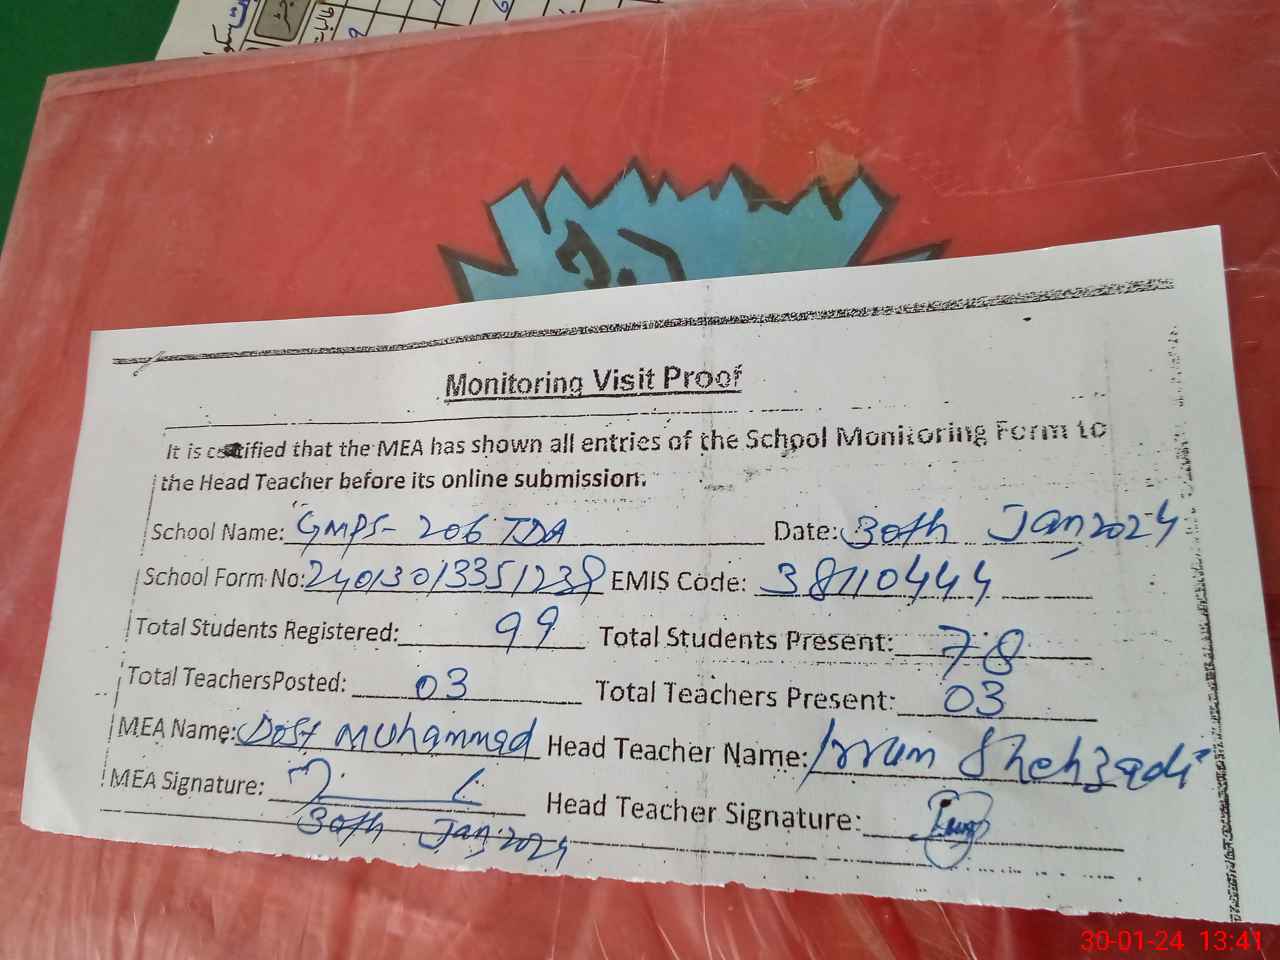 Monitoring Visit Proof
It is certified that the MEA has shown all entries of the School Monitoring Form to
the Head Teacher before its online submission.
School Name: GMPS- 206 TDA Date: 30th Jan, 2024
School Form No: 24013013351239 EMIS Code: 38110444
Total Students Registered: 99 Total Students Present: 78
Total TeachersPosted: 03 Total Teachers Present: 03
MEA Name: Dost Muhammad Head Teacher Name: Irrum Shehzadi
MEA Signature: Head Teacher Signature:
30th Jan, 2024
30-01-24 13:41